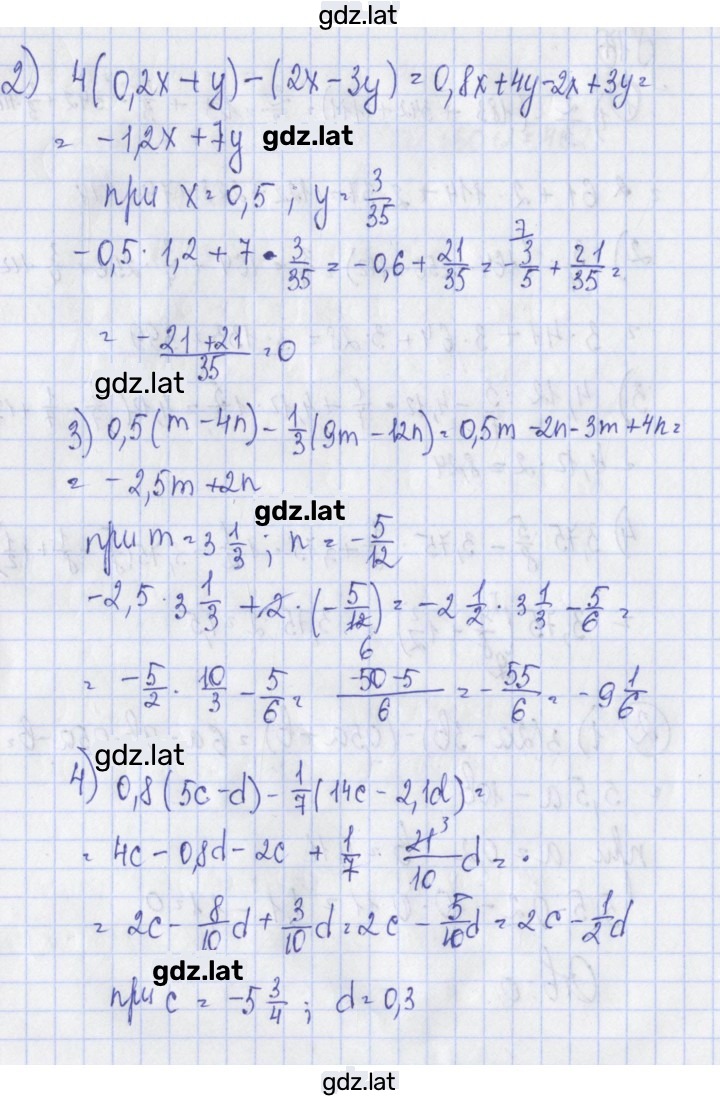 gdz.lat
2) 4(0,2x + y) - (2x - 3y) = 0,8x + 4y - 2x + 3y =
= -1,2x + 7y gdz.lat
при x = 0,5 ; y = 3/35
-0,5 · 1,2 + 7 · 3/35 = -0,6 + 21/35 = - 7 3/5 + 21/35 =
= - 21 + 21 / 35 = 0
gdz.lat
3) 0,5(m - 4n) - 1/3(9m - 12n) = 0,5m - 2n - 3m + 4n =
= -2,5m + 2n
gdz.lat
при m = 3 1/3 ; n = - 5/12
-2,5 · 3 1/3 + 2 · (- 5/12 6) = -2 1/2 · 3 1/3 - 5/6 =
= - 5/2 · 10/3 - 5/6 = -50 - 5 / 6 = - 55/6 = -9 1/6
gdz.lat
4) 0,8(5c - d) - 1/7(14c - 2,1d) =
= 4c - 0,8d - 2c + 1/7 21 3/10 d = ·
= 2c - 8/10 d + 3/10 d = 2c - 5/10 d = 2c - 1/2 d
gdz.lat
при c = -5 3/4 ; d = 0,3
gdz.lat